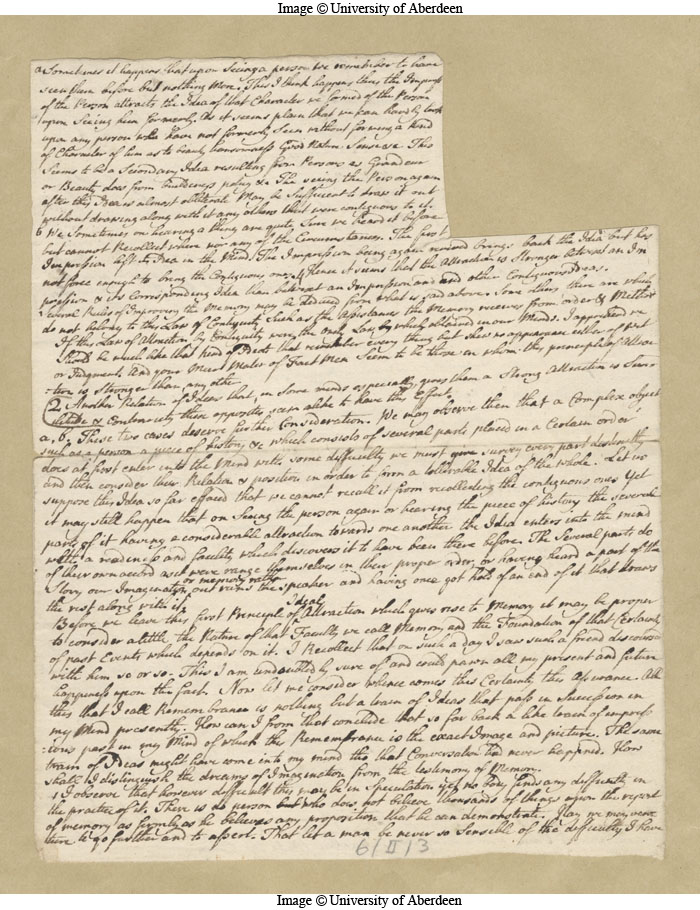 Image © University of Aberdeen
a Sometimes it happens that upon Seeing a person we remember to have
seen them before but nothing More. This I think happens thus the Impress
of the Person attracts the Idea of that Character we formed of the Person
upon Seeing him formerly. As it seems plain that we can hardly look
upon any person who have not formerly seen without forming a kind
of Character of him as to beauty humorousness Good Nature Sense &c. This
Seems to be a Secondary Idea resulting from Persons as Grandeur
or Beauty does from buildings &c. The seeing the Person again
after this Idea is almost obliterate May be Sufficient to draw it out
without drawing along with it any others that were contiguous to it.
b We Sometimes on hearing a thing are quite Sure we heard it before
but cannot Recollect where nor any of the Circumstances. The first
Impression left its Idea in the Mind. The Impression being again revived brings back the Idea but has
not force enough to bring the Contiguous ones. Hence it seems that the Attraction is Stronger betwixt an Im
pression & its Corresponding Idea than betwixt an Impression and other Contiguous Ideas.
Several Rules of Improving the Memory may be deduced from what is said above. Some others there are which
do not belong to this Law of Contiguity Such as the Assistance the Memory receives from order & Method
If this Law of Attraction by Contiguity were the Only Law by which obtained in our Minds. I apprehend we
Should be much like that kind of Ideot that remember every thing but shew no appearance either of Wit
or Judgment. And your Meer Mater of Fact Men Seem to be those in whom this principle of Attrac
-tion is Stronger than any other
2 Another Relation of Ideas that, in Some minds especially, gives them a Strong Attraction is Simi
litude & Contrariety these opposites seem alike to have this Effect.
a, b, These two cases deserve further Consideration. We may observe then that a Complex object
such as a person a piece of history &c which consists of several parts placed in a Certain order
does at first enter into the Mind with some difficulty we must survey every part distinctly
and then consider their Relation & position in order to form a tolerable Idea of the whole. Let us
suppose this Idea so far effaced that we cannot recall it from recollecting the contiguous ones yet
it may still happen that on Seeing the person again or hearing the piece of history the severale
parts of it having a considerable attraction towards one another the Idea enters into the mind
with a readiness and facility which discovers it to have been there before. The Several parts do
of their own accord as it were range themselves in their proper order, or having heard a part of the
Story our Imagination or memory rather out runs the speaker and having once got hold of an end of it that draws
the rest along with it.
Before we leave this first Principle of Ideal Attraction which gives rise to Memory it may be proper
to consider a little the Nature of that Faculty we call Memory and the Foundation of that Certainty
of past Events which depends on it. I Recollect that on such a day I saw such a friend discoursed
with him so or so. This I am undoubtedly sure of and could pawn all my present and future
happiness upon the fact. Now let me consider whence comes this Certainty this assurance. All
this that I call Remembrance is nothing but a train of Ideas that pass in Succession in
my Mind presently. How can I from that conclude that so far back a like train of impress
ions past in my Mind of which the Remembrance is the exact Image and picture. The same
train of Ideas might have come into my mind tho that Conversation had never happned. How
shall I distinguish the dreams of Imagination from the testimony of Memory.
1 I observe that however difficult this may be in Speculation yet no body finds any difficulty in
the practice of it. There is no person but who does not believe thousands of things upon the report
of memory as firmly as he believes any proposition that he can demonstrate. Nay we may venture
here to go further and to assert. That let a man be never so Sensible of the difficulty I have
6/II/3
Image © University of Aberdeen